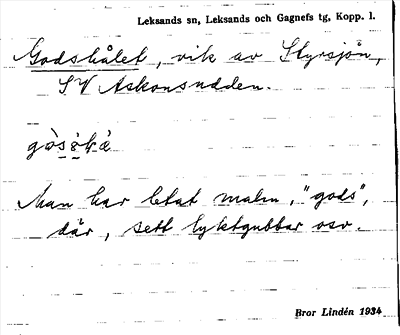 Leksands sn, Leksands och Gagnefs tg, Kopp. l.
Godshålet, vik av Styrsjön,
SV Askonsudden.
Man har letat malm, "gods",
där, sett lyktgubbar osv.
Bror Lindén 1934